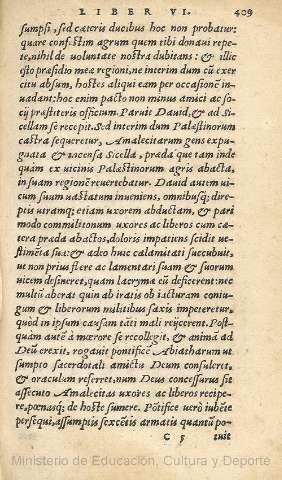 LIBER VI. 409
sumpsi, sed cæteris ducibus hoc non probatur:
quare confestim agrum quem tibi donaui repe-
te, nihil de voluntate nostra dubitans: & illic
esto præsidio meæ regioni, ne interim dum cū exer
citu absum, hostes aliqui eam per occasionē in-
uadant: hoc enim pacto non minus amici ac so-
cij præstiteris officium. Paruit Dauid, & ad Si-
cellam se recepit. Sed interim dum Palæstinorum
castra sequeretur, Amalecitarum gens expu-
gnata & incensa Sicella, præda que tam inde
quàm ex vicinis Palæstinorum agris abacta,
in suam regionē reuertebatur. Dauid autem vi-
cum suum vastatum inueniens, omnibusq; dire-
ptis vtranq; etiam vxorem abductam, & pari
modo commilitonum vxores ac liberos cum cæ-
tera præda abactos, doloris impatiens scidit ve-
stimēta sua: & adeo huic calamitati succubuit,
ut non prius flere ac lamentari suam & suorum
vicem desineret, quàm lacrymæ eū deficerent: nec
multū aberat quin ab iratis ob iacturam coniu-
gum & liberorum militibus saxis impeteretur,
quòd in ipsum causam tāti mali reijcerent. Post-
quàm autē à mœrore se recollegit, & animū ad
Deū erexit, rogauit pontificē Abiatharum ut
sumpto sacerdotali amictu Deum consuleret,
& oraculum referret, num Deus concessurus sit
assecuto Amalecitas vxores ac liberos recipe-
re, pœnasq; de hoste sumere. Pōtifice verò iubēte
persequi, assumptis sexcētis armatis quantū po-
C 5 tuit
Ministerio de Educación, Cultura y Deporte